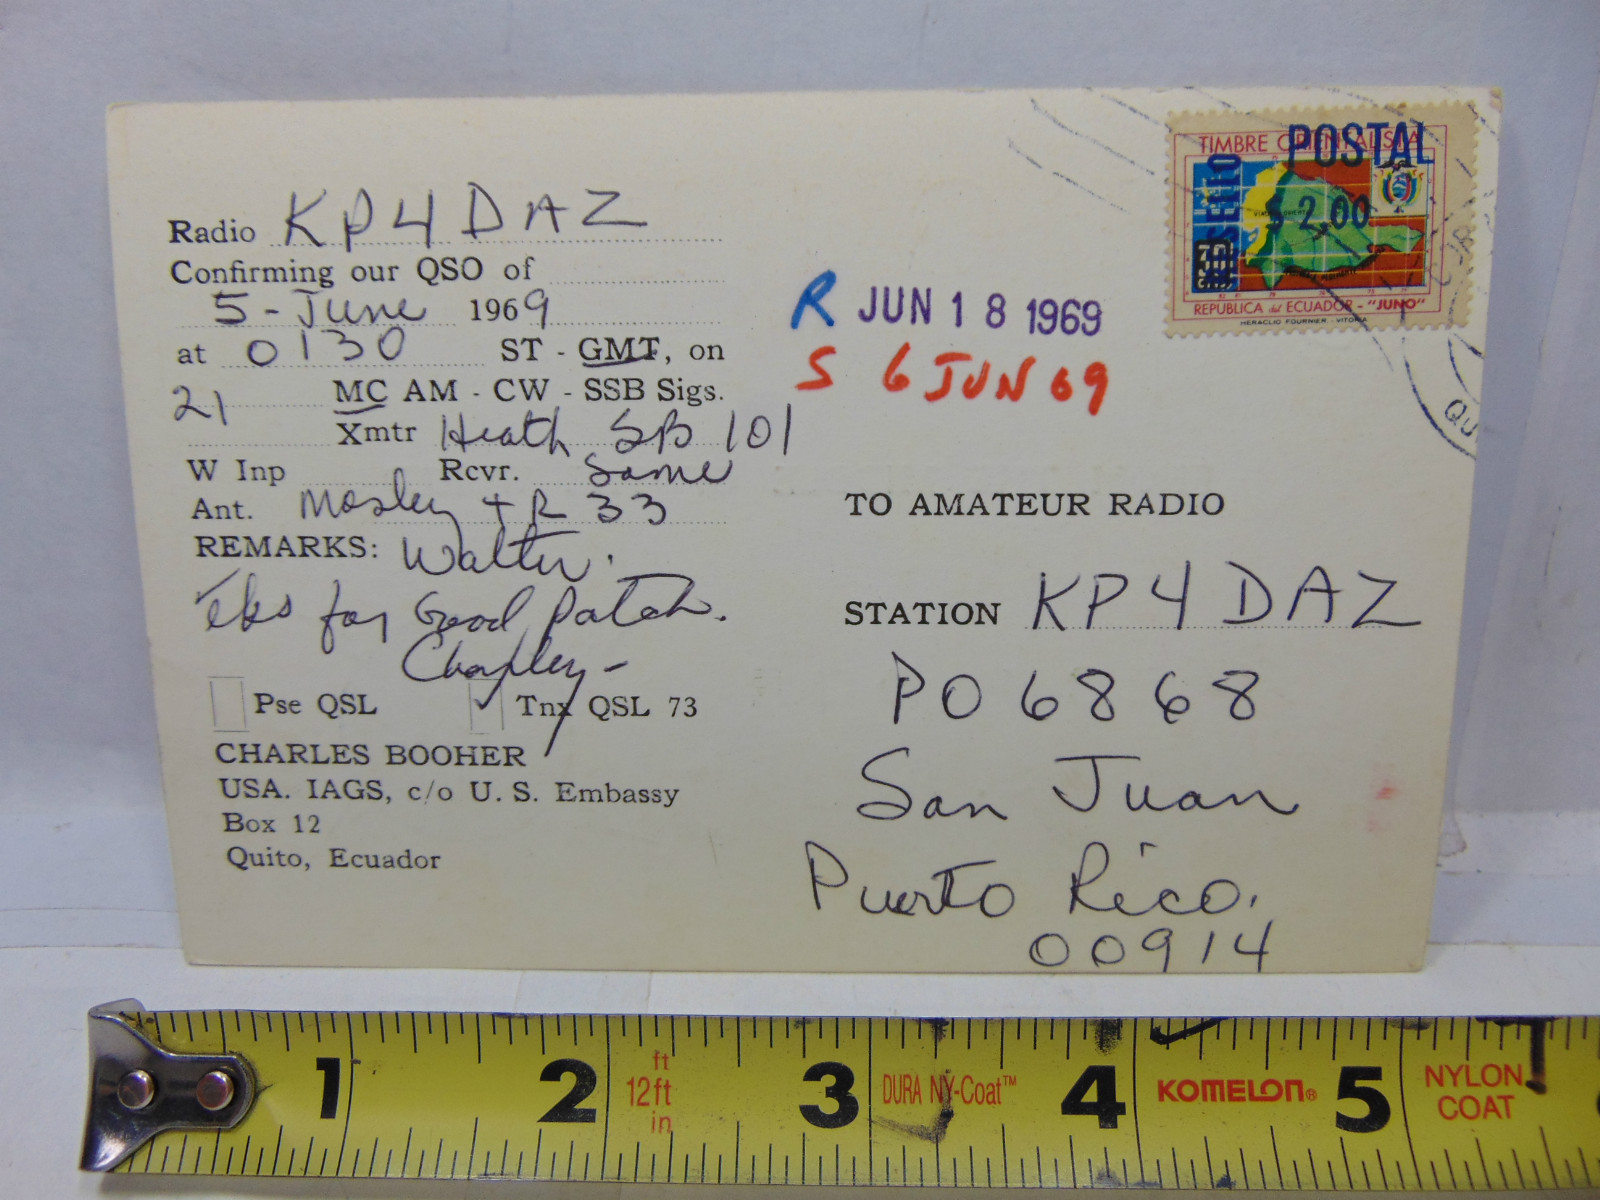 Radio KP4DAZ
Confirming our QSO of
5-June 1969
at 0130 ST - GMT, on
21 MC AM - CW - SSB Sigs.
Xmtr Heath SB 101
W Inp Rcvr. Same
Ant. Mosley TR 33
REMARKS: Walter.
Tks for Good patch.
Charley -
Pse QSL ✓ Tnx QSL 73
CHARLES BOOHER
USA. IAGS, c/o U. S. Embassy
Box 12
Quito, Ecuador
TIMBRE ORIENTALISTA
POSTAL
$ 2,00
REPUBLICA del ECUADOR - "JUNO"
HERACLIO FOURNIER - VITORIA
QU
R JUN 18 1969
S 6 JUN 69
TO AMATEUR RADIO
STATION KP4DAZ
PO 6868
San Juan
Puerto Rico.
00914
1 2 3 4 5
ft
12ft
in
DURA NY-Coat™
KOMELON®
NYLON
COAT